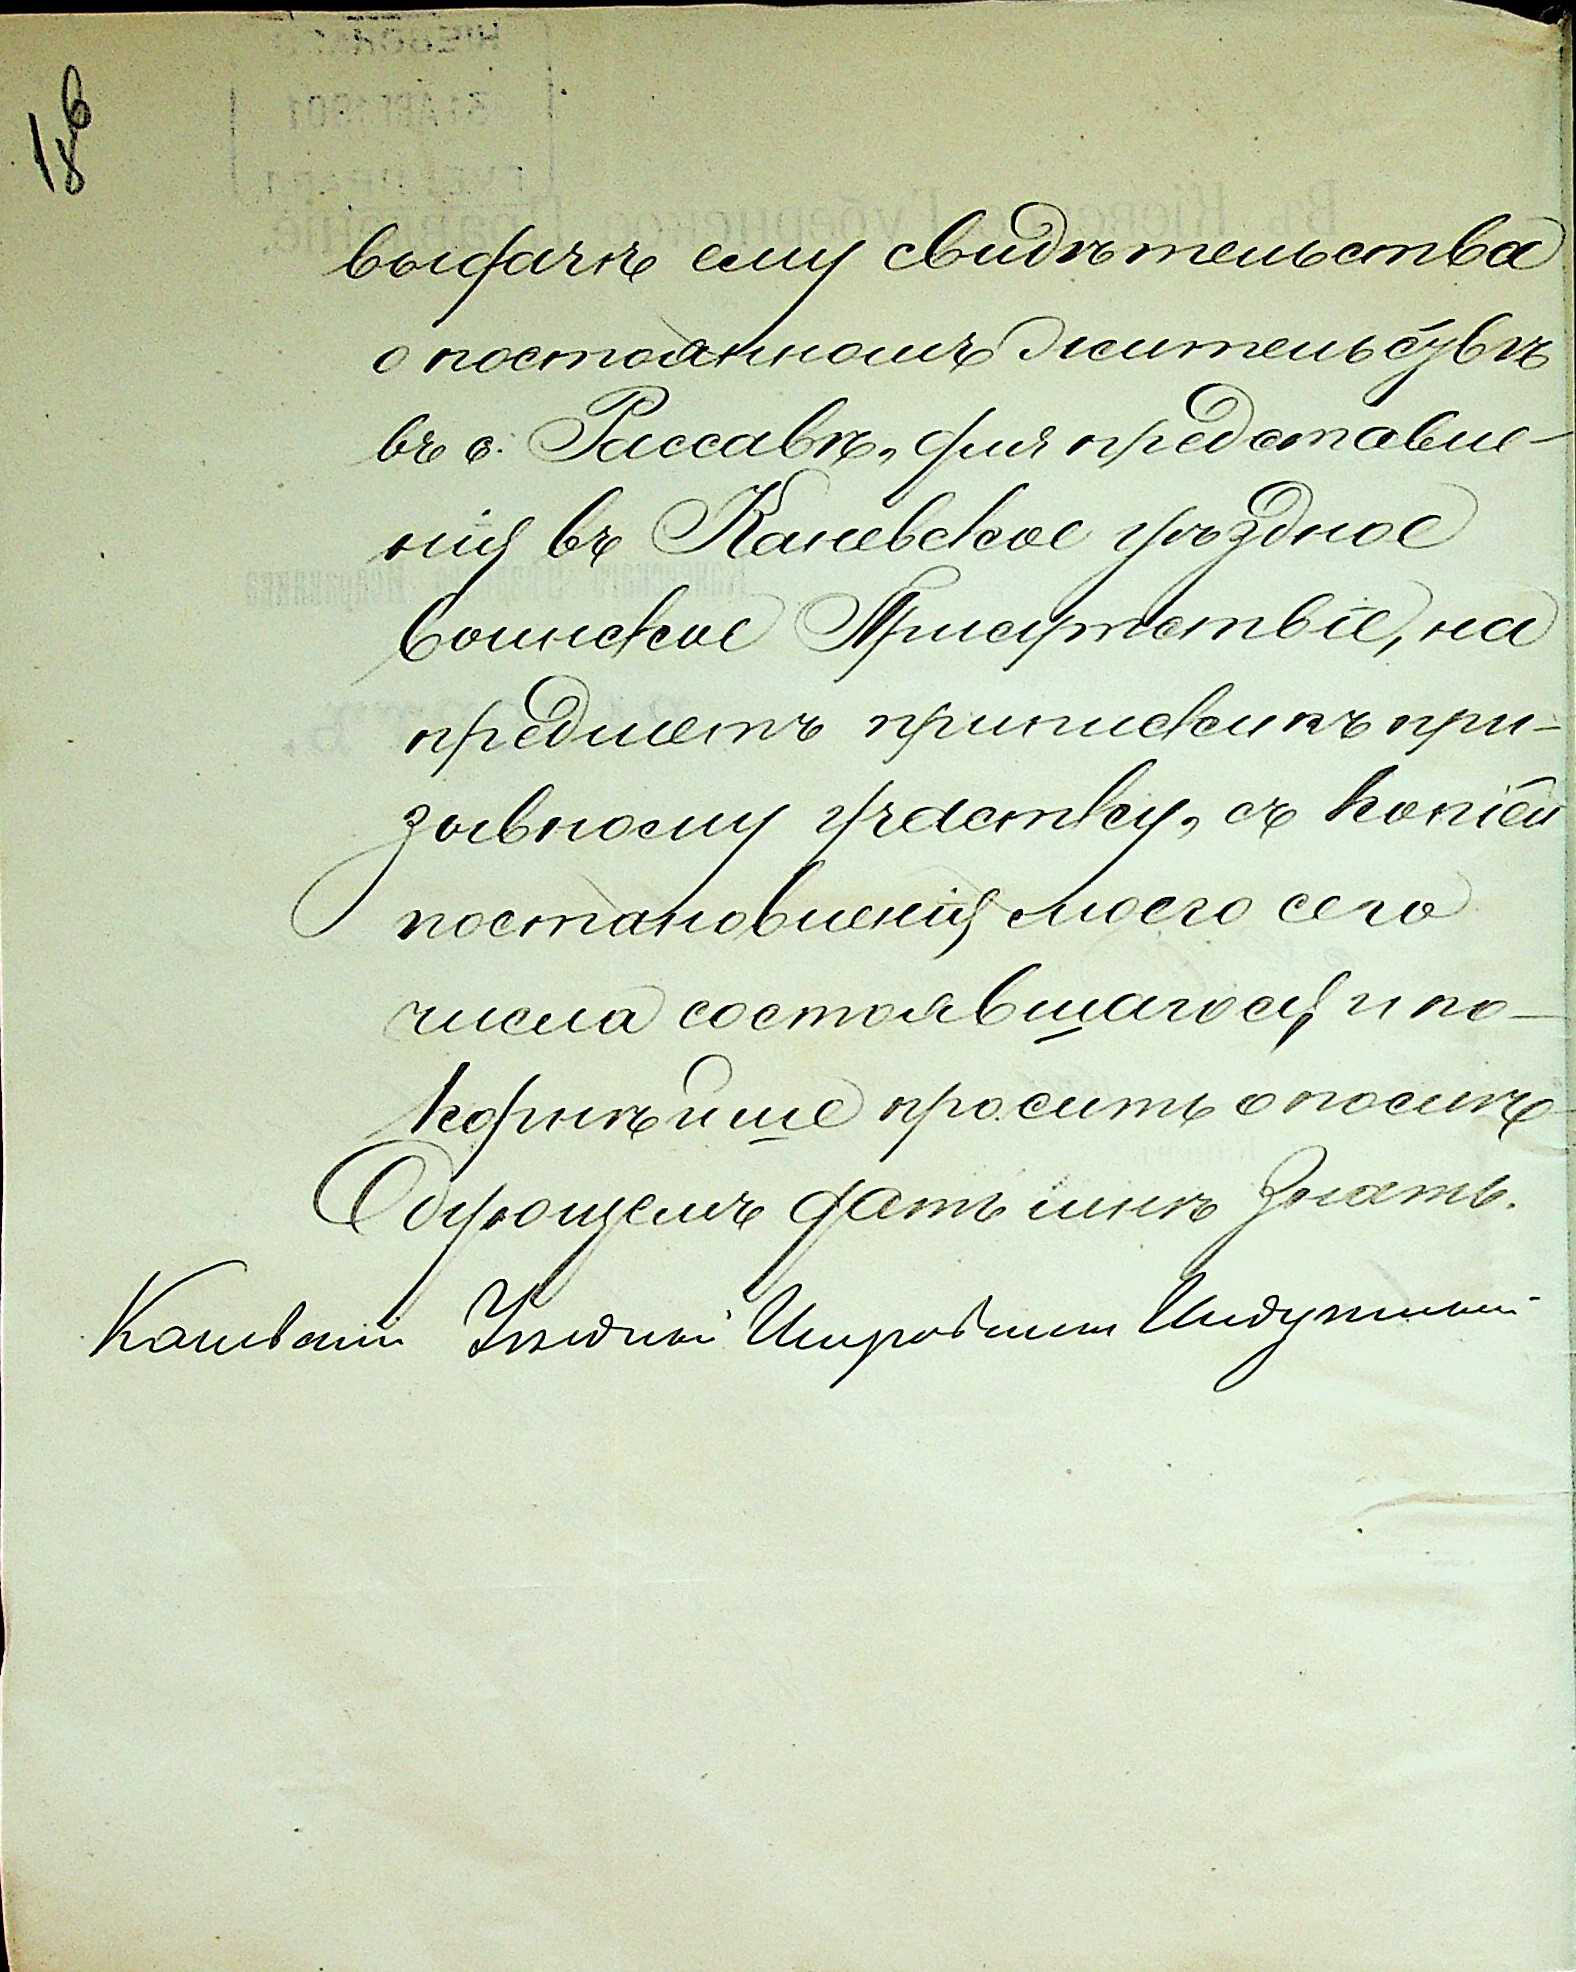 186
выдачѣ ему свидѣтельства
о постоянномъ жительствѣ
въ с. Рассавѣ, для представле-
нія въ Каневское уѣздное
воинское Присутствіе, на
предметъ приписки къ при-
зывному участку, съ копіей
постановленія моего сего
числа состоявшагося и по-
корнѣйше просить о послѣ-
дующемъ дать мнѣ знать.
Каневскій Уѣздный Исправникъ